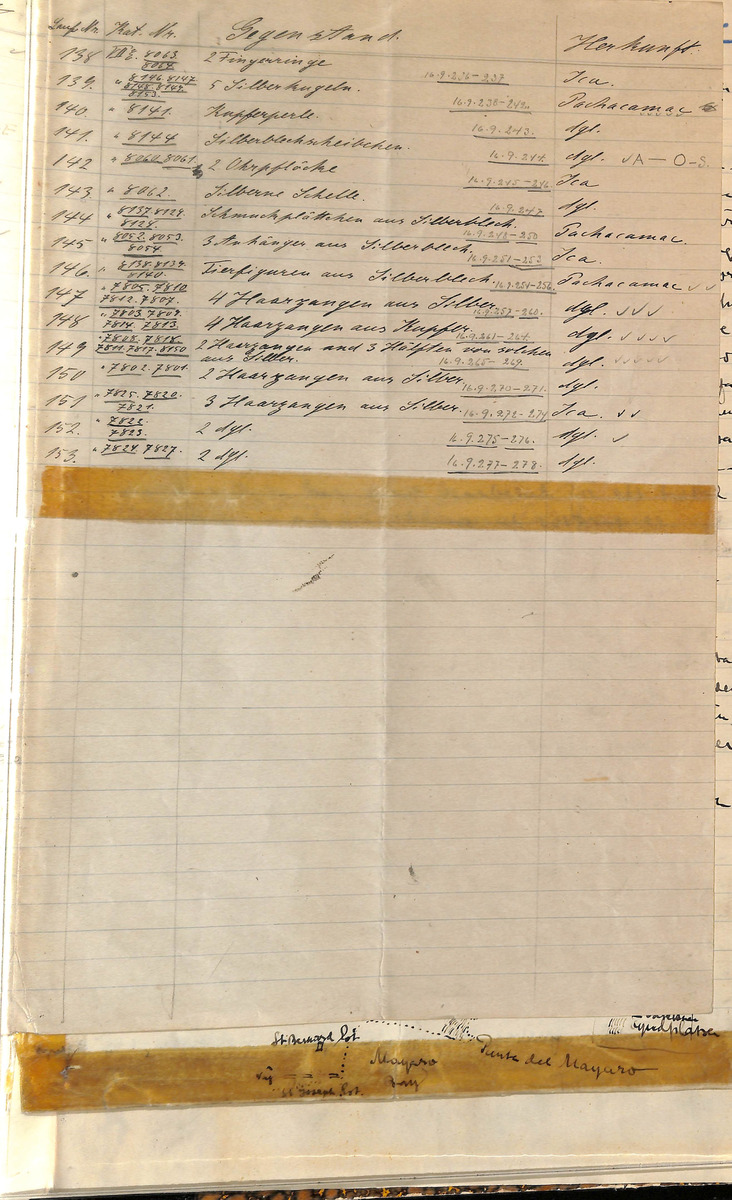 Lauf. Nr. Kat. Nr. Gegenstand. Herkunft.
138 8063. 8064. 2 Fingerringe 16.9.236-237 Ica
139. " 8146. 8147 8148. 8149. 8153. 5 Silberkugeln. 16.9.238-242. Pachacamac
140. " 8141. Kupferperle. 16.9.243. dgl.
141. " 8144 Silberblechscheibchen. 16.9.244. dgl. ✓A-O-S.
142 " 8060. 8061. 2 Ohrpflöcke 16.9.245-246. Ica
143. " 8062. Silberne Schelle. 16.9.247 dgl.
144 " 8137. 8129. 8128. Schmuckplättchen aus Silberblech. 16.9.248-250 Pachacamac.
145 " 8052. 8053. 8054. 3 Anhänger aus Silberblech. 16.9.251-253 Ica.
146. " 8138. 8139. 8140. Tierfiguren aus Silberblech. 16.9.254-256. Pachacamac ✓✓
147 " 7805. 7810. 7812. 7807. 4 Haarzangen aus Silber 16.9.257-260. dgl. ✓✓✓
148 " 7803. 7809. 7814. 7813. 4 Haarzangen aus Kupfer. 16.9.261-264. dgl. ✓✓✓✓
149 " 7808. 7818. 7811. 7817. 8150 2 Haarzangen und 3 Hälften von solchen
aus Silber. 16.9.265-269. dgl. ✓✓✓✓
150 " 7802. 7801. 2 Haarzangen aus Silber 16.9.270-271. dgl.
151 " 7825. 7820. 7821. 3 Haarzangen aus Silber. 16.9.272-274 Ica. ✓✓
152. " 7822. 7823. 2 dgl. 16.9.275-276. dgl. ✓
153. " 7824. 7827. 2 dgl. 16.9.277-278. dgl.
St. Bernard Est.
Mayaro
Bay
Punta del Mayaro
St Joseph Est.